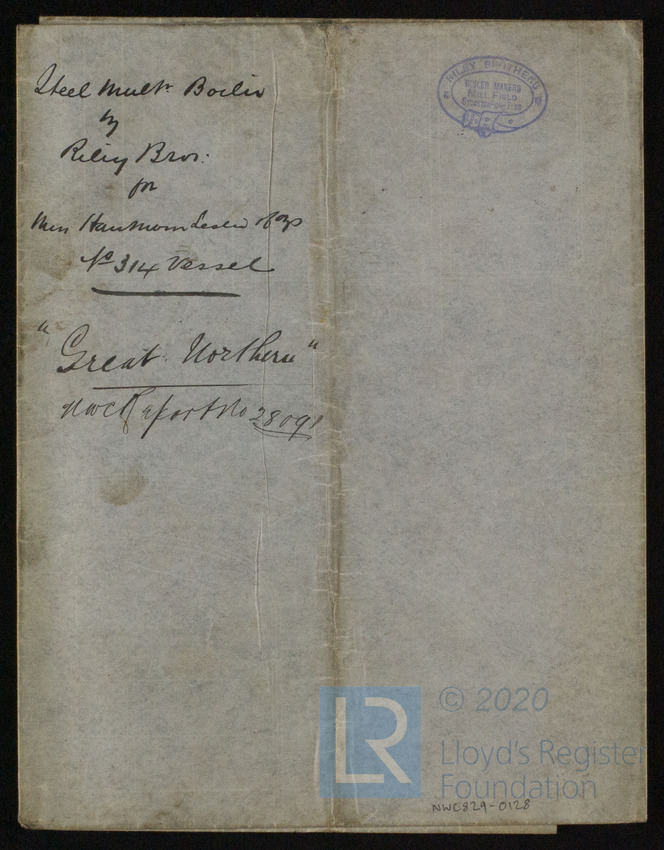 Steel Multr Boiler
by
Riley Bros:
for
Mess Hawthorn Leslie & Co's
No 314 Vessel
"Great Northern"
NWC Report No 28091
RILEY BROTHERS
BOILER MAKERS
© 2020
LR
Lloyd's Register
Foundation
NWC829-0128